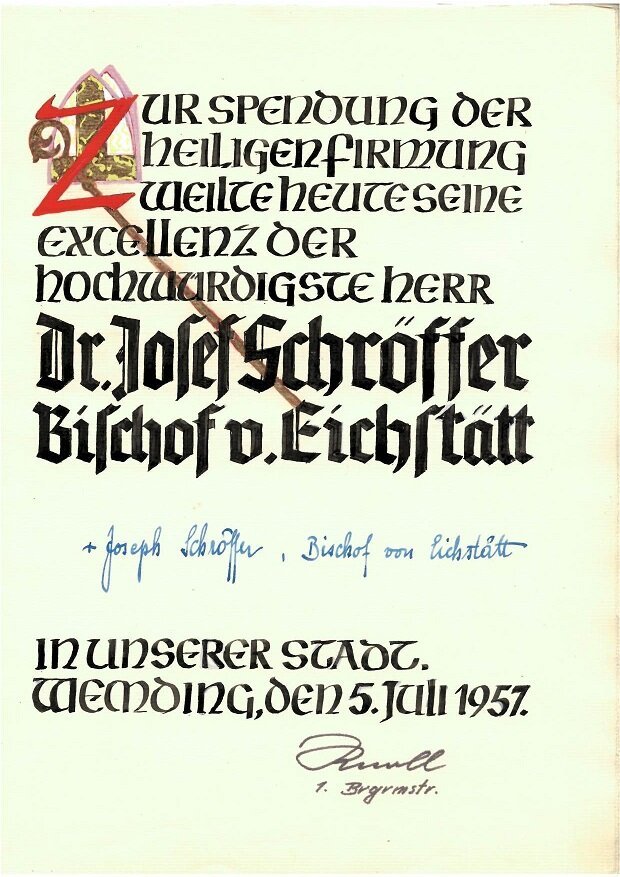 Zur Spendung der
heiligen Firmung
weilte heute seine
Excellenz der
hochwürdigste Herr
Dr. Josef Schröffer
Bischof v. Eichstätt
+ Joseph Schröffer, Bischof von Eichstätt
in unserer Stadt.
Wemding, den 5. Juli 1957.
1. Brgrmstr.